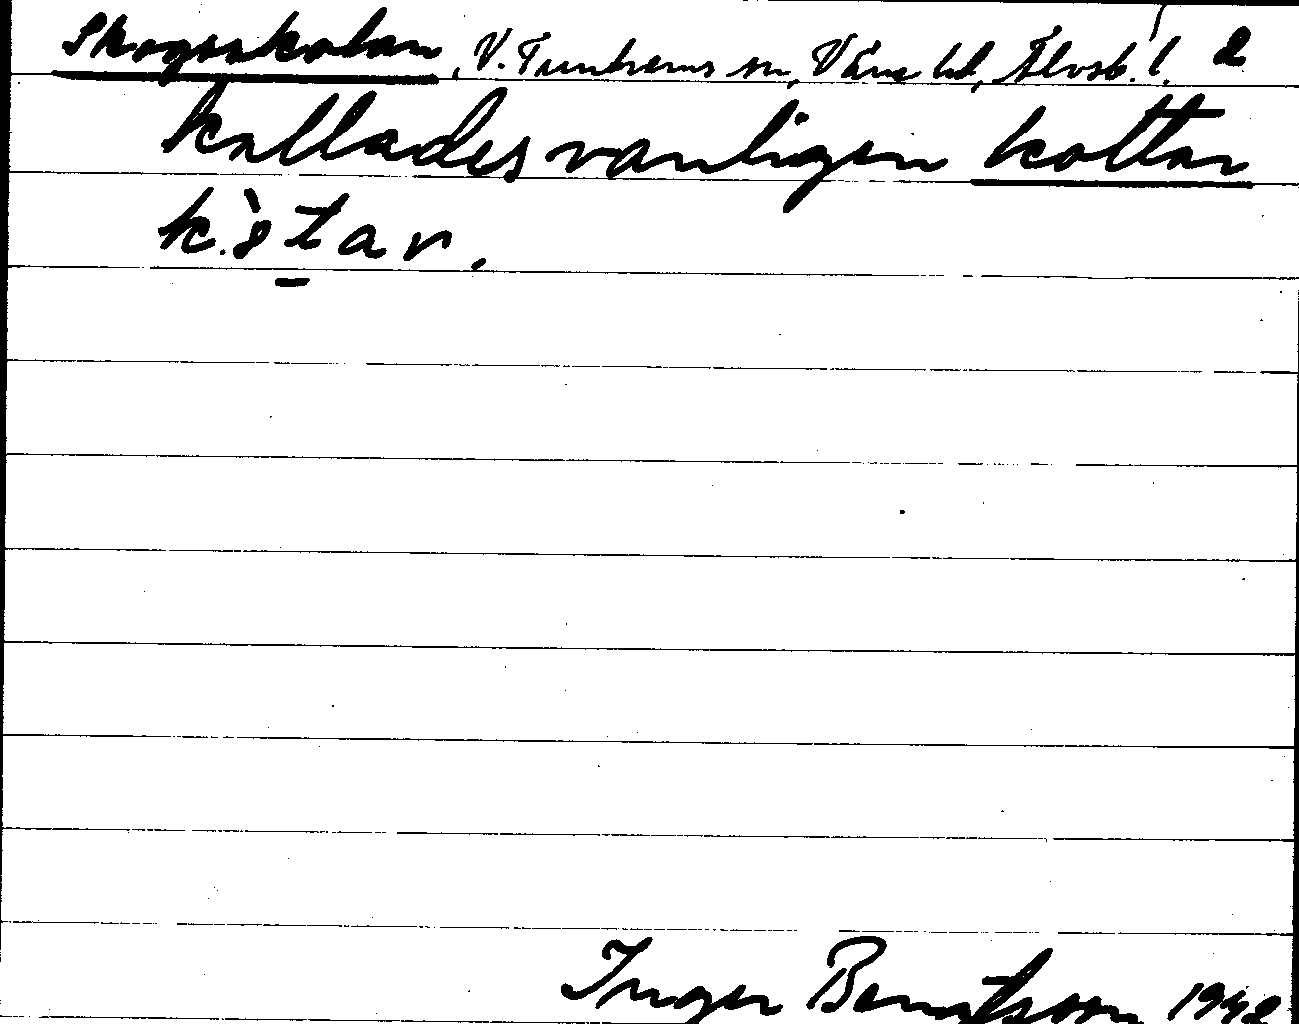 Skogsskolan, V. Tunhems sn, Väne hd, Älvsb. l. 2
kallades vanligen kottar
k.ὸtar.
Inger Bengtsson 1942